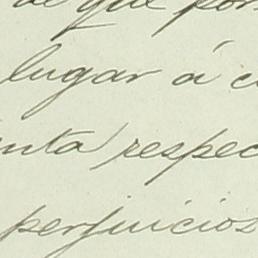 de que por
lugar á c
nta respec
perjuicios